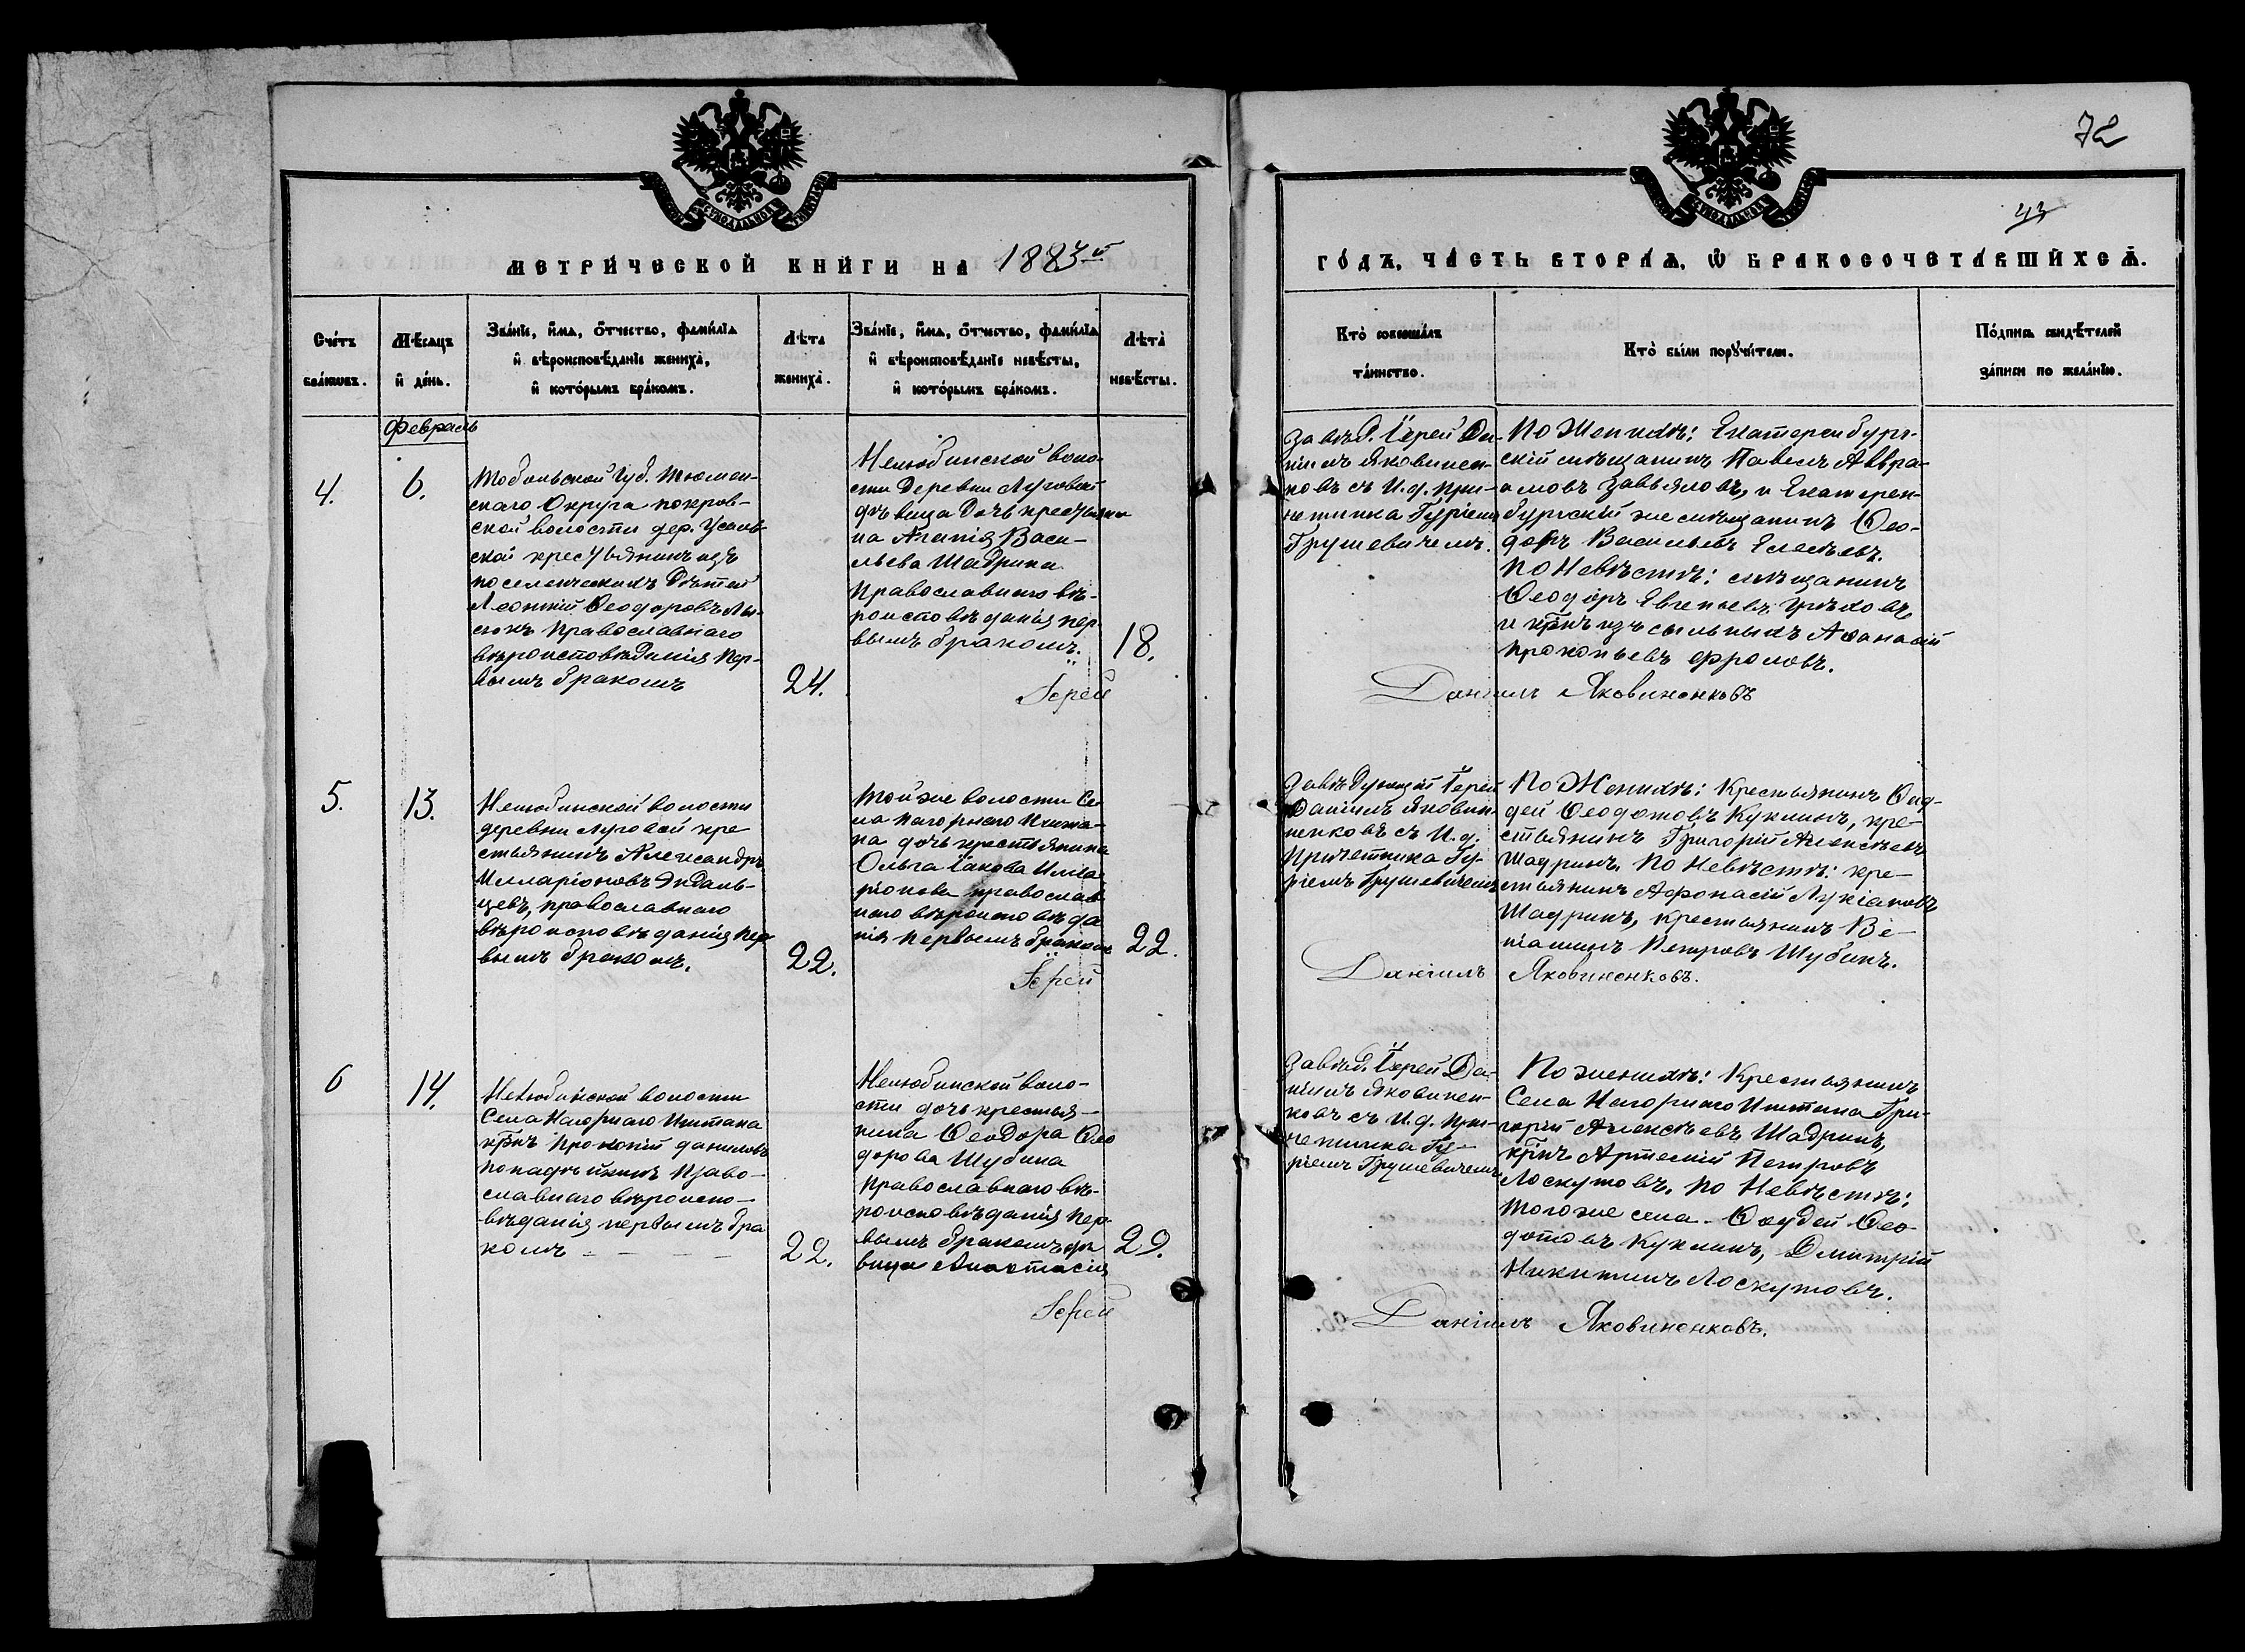 72
43
МЕТРИЧЕСКОЙ КНИГИ НА 1883й
ГОДЪ, ЧАСТЬ ВТОРАЯ, Ѿ БРАКОСОЧЕТАВШИХСЯ.
Счетъ браковъ.
Мѣсяцъ и день.
Званіе, имя, отчество, фамилія
и вѣроисповѣданіе жениха,
и которымъ бракомъ.
Лѣта
жениха.
Званіе, имя, отчество, фамилія
и вѣроисповѣданіе невѣсты,
и которымъ бракомъ.
Лѣта
невѣсты.
Кто совершалъ
таинство.
Кто были поручители.
Подпись свидѣтелей
записи по желанію.
Февраль
4.
6.
Тобольской Губ. Тюмен-
скаго Округа покров-
ской волости дер. Усаль-
ской крестьянинъ изъ
поселенческихъ Дѣтей
Леонтій Ѳеодоровъ
Православнаго
вѣроисповѣданія пер-
вымъ бракомъ
24.
Нелюбинской воло-
сти Деревни Луговой
дѣвица Дочь крестьяни
на Агапія Васи-
льева Шадрина
Православнаго вѣ-
роисповѣданія пер-
вымъ бракомъ.
18.
Іерей
Завѣд. Іерей Да-
ніилъ Яковинен-
ковъ съ И.д. при-
четника Гуріемъ
Грушевичемъ.
По Женихѣ: Екатеринбург-
скій мѣщанинъ Павелъ Авра-
амовъ Завьяловъ, и Екатерин-
бургскій же мѣщанинъ Ѳео-
доръ Васильевъ Елесѣевъ.
По Невѣстѣ: мѣщанинъ
Ѳеодоръ Евгеньевъ
и крнъ изъ сыльныхъ Аѳанасій
Прокопьевъ Фроловъ.
Даніилъ Яковиненковъ
5.
13.
Нелюбинской волости
деревни Луговой кре
стьянинъ Александръ
Илларіоновъ Эндаль-
цевъ, православнаго
вѣроисповѣданія пер
вымъ бракомъ.
22.
Той же волости Се
ла Нагорнаго Иштa-
на дочь крестьянина
Ольга Іакова Илла
ріонова православ
наго вѣроисповѣда
нія первымъ бракомъ
22.
Іерей
Завѣдующій Іерей
Даніилъ Яковин-
ненковъ съ И.д.
Причетника Гу-
ріемъ Грушевичемъ
По Женихѣ: Крестьянинъ Ѳад-
дей Ѳеодотовъ Куклинъ, кре-
стьянинъ Григорій Алексѣевъ
Шадринъ. По Невѣстѣ: кре-
стьянинъ Афонасій Лукіановъ
Шадринъ, крестьянинъ Ве-
ніаминъ Петровъ Шубинъ.
Даніилъ Яковиненковъ.
6
14.
Нелюбинской волости
Села Нагорнаго Иштана
крнъ Прокопій Даниловъ
Право-
славнаго вѣроиспо-
вѣданія первымъ бра
комъ
22.
Нелюбинской воло-
сти дочь крестья-
нина Ѳеодора Ѳео
дорова Шубина
Православнаго вѣ-
роисповѣданія пер-
вымъ бракомъ дѣ
вица Анастасія
29.
Іерей
Завѣд. Іерей Да-
ніилъ Яковинен-
ковъ съ И.д. при-
четника Гу-
ріемъ Грушевичемъ
По женихѣ: Крестьянинъ
Села Нагорнаго Иштана Гри-
горій Алексѣевъ Шадринъ,
крнъ Артемій Петровъ
Лоскутовъ. По Невѣстѣ:
Того же села Ѳаддей Ѳео
дотовъ Куклинъ, Дмитрій
Никитинъ Лоскутовъ.
Даніилъ Яковиненковъ.